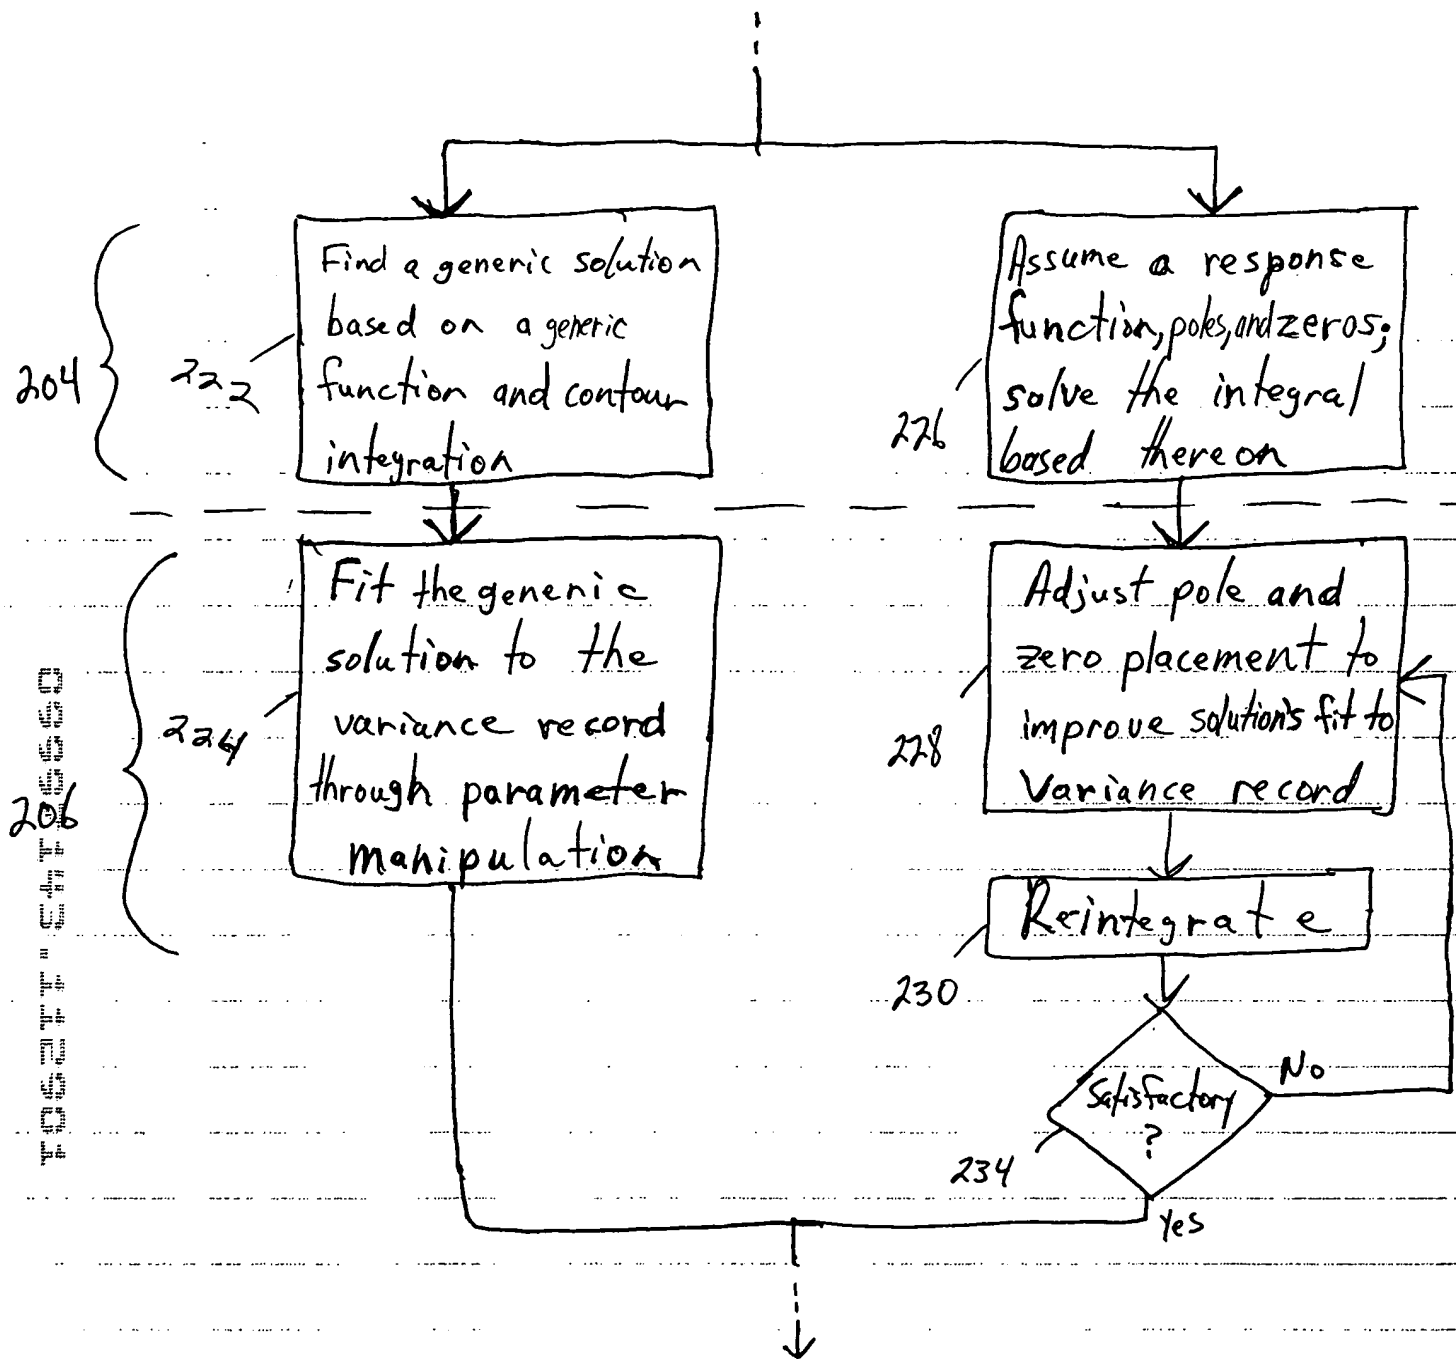 Find a generic solution
based on a generic
function and contour
integration
204
222
Assume a response
function, poles, and zeros;
solve the integral
based thereon
226
Fit the generic
solution to the
variance record
through parameter
manipulation
224
206
Adjust pole and
zero placement to
improve solution's fit to
variance record
228
Reintegrate
230
Satisfactory
?
234
No
Yes